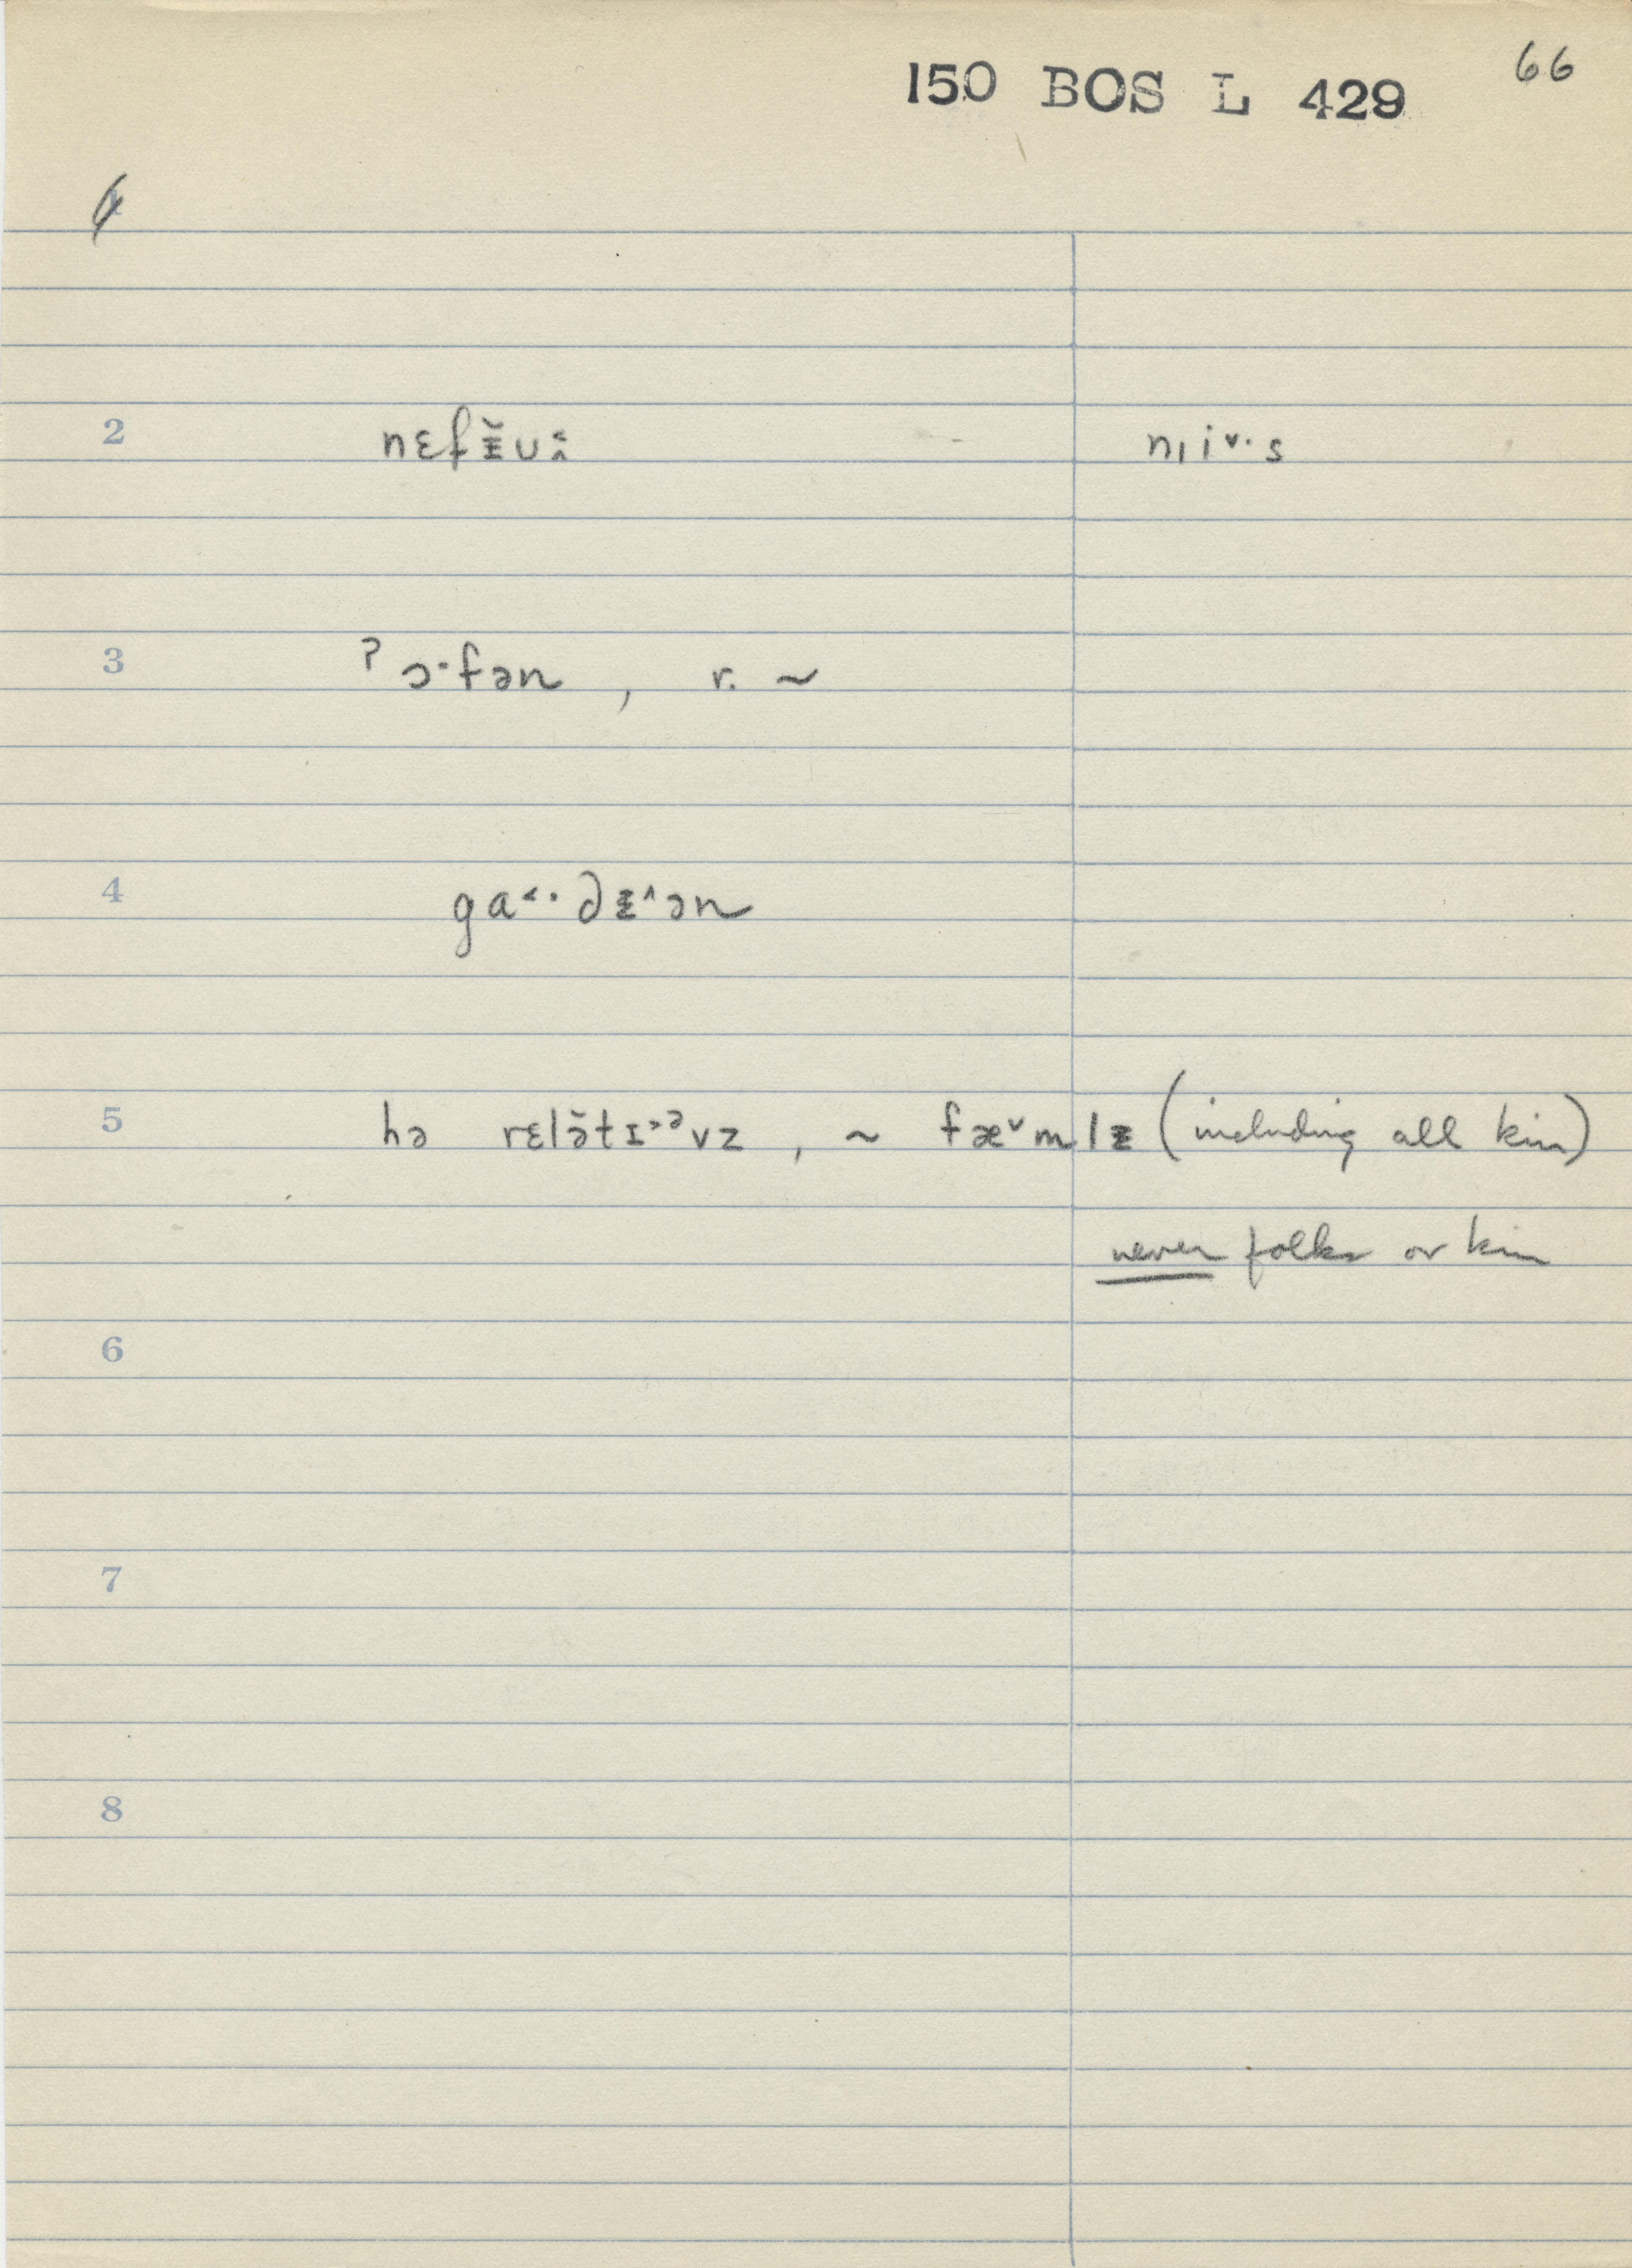 150 BOS L 429 66
1
2 nɛfɪ̵̆ʉ˂˄ n̩iˇ·s
3 ˀɔ·fən , r. ~
4 ga˂·∂ɪ̵^ən
5 hə rɛlə̆tɪ˃ᵊvz , ~ fæˇmlɪ̵ (including all kin)
never folks or kin
6
7
8